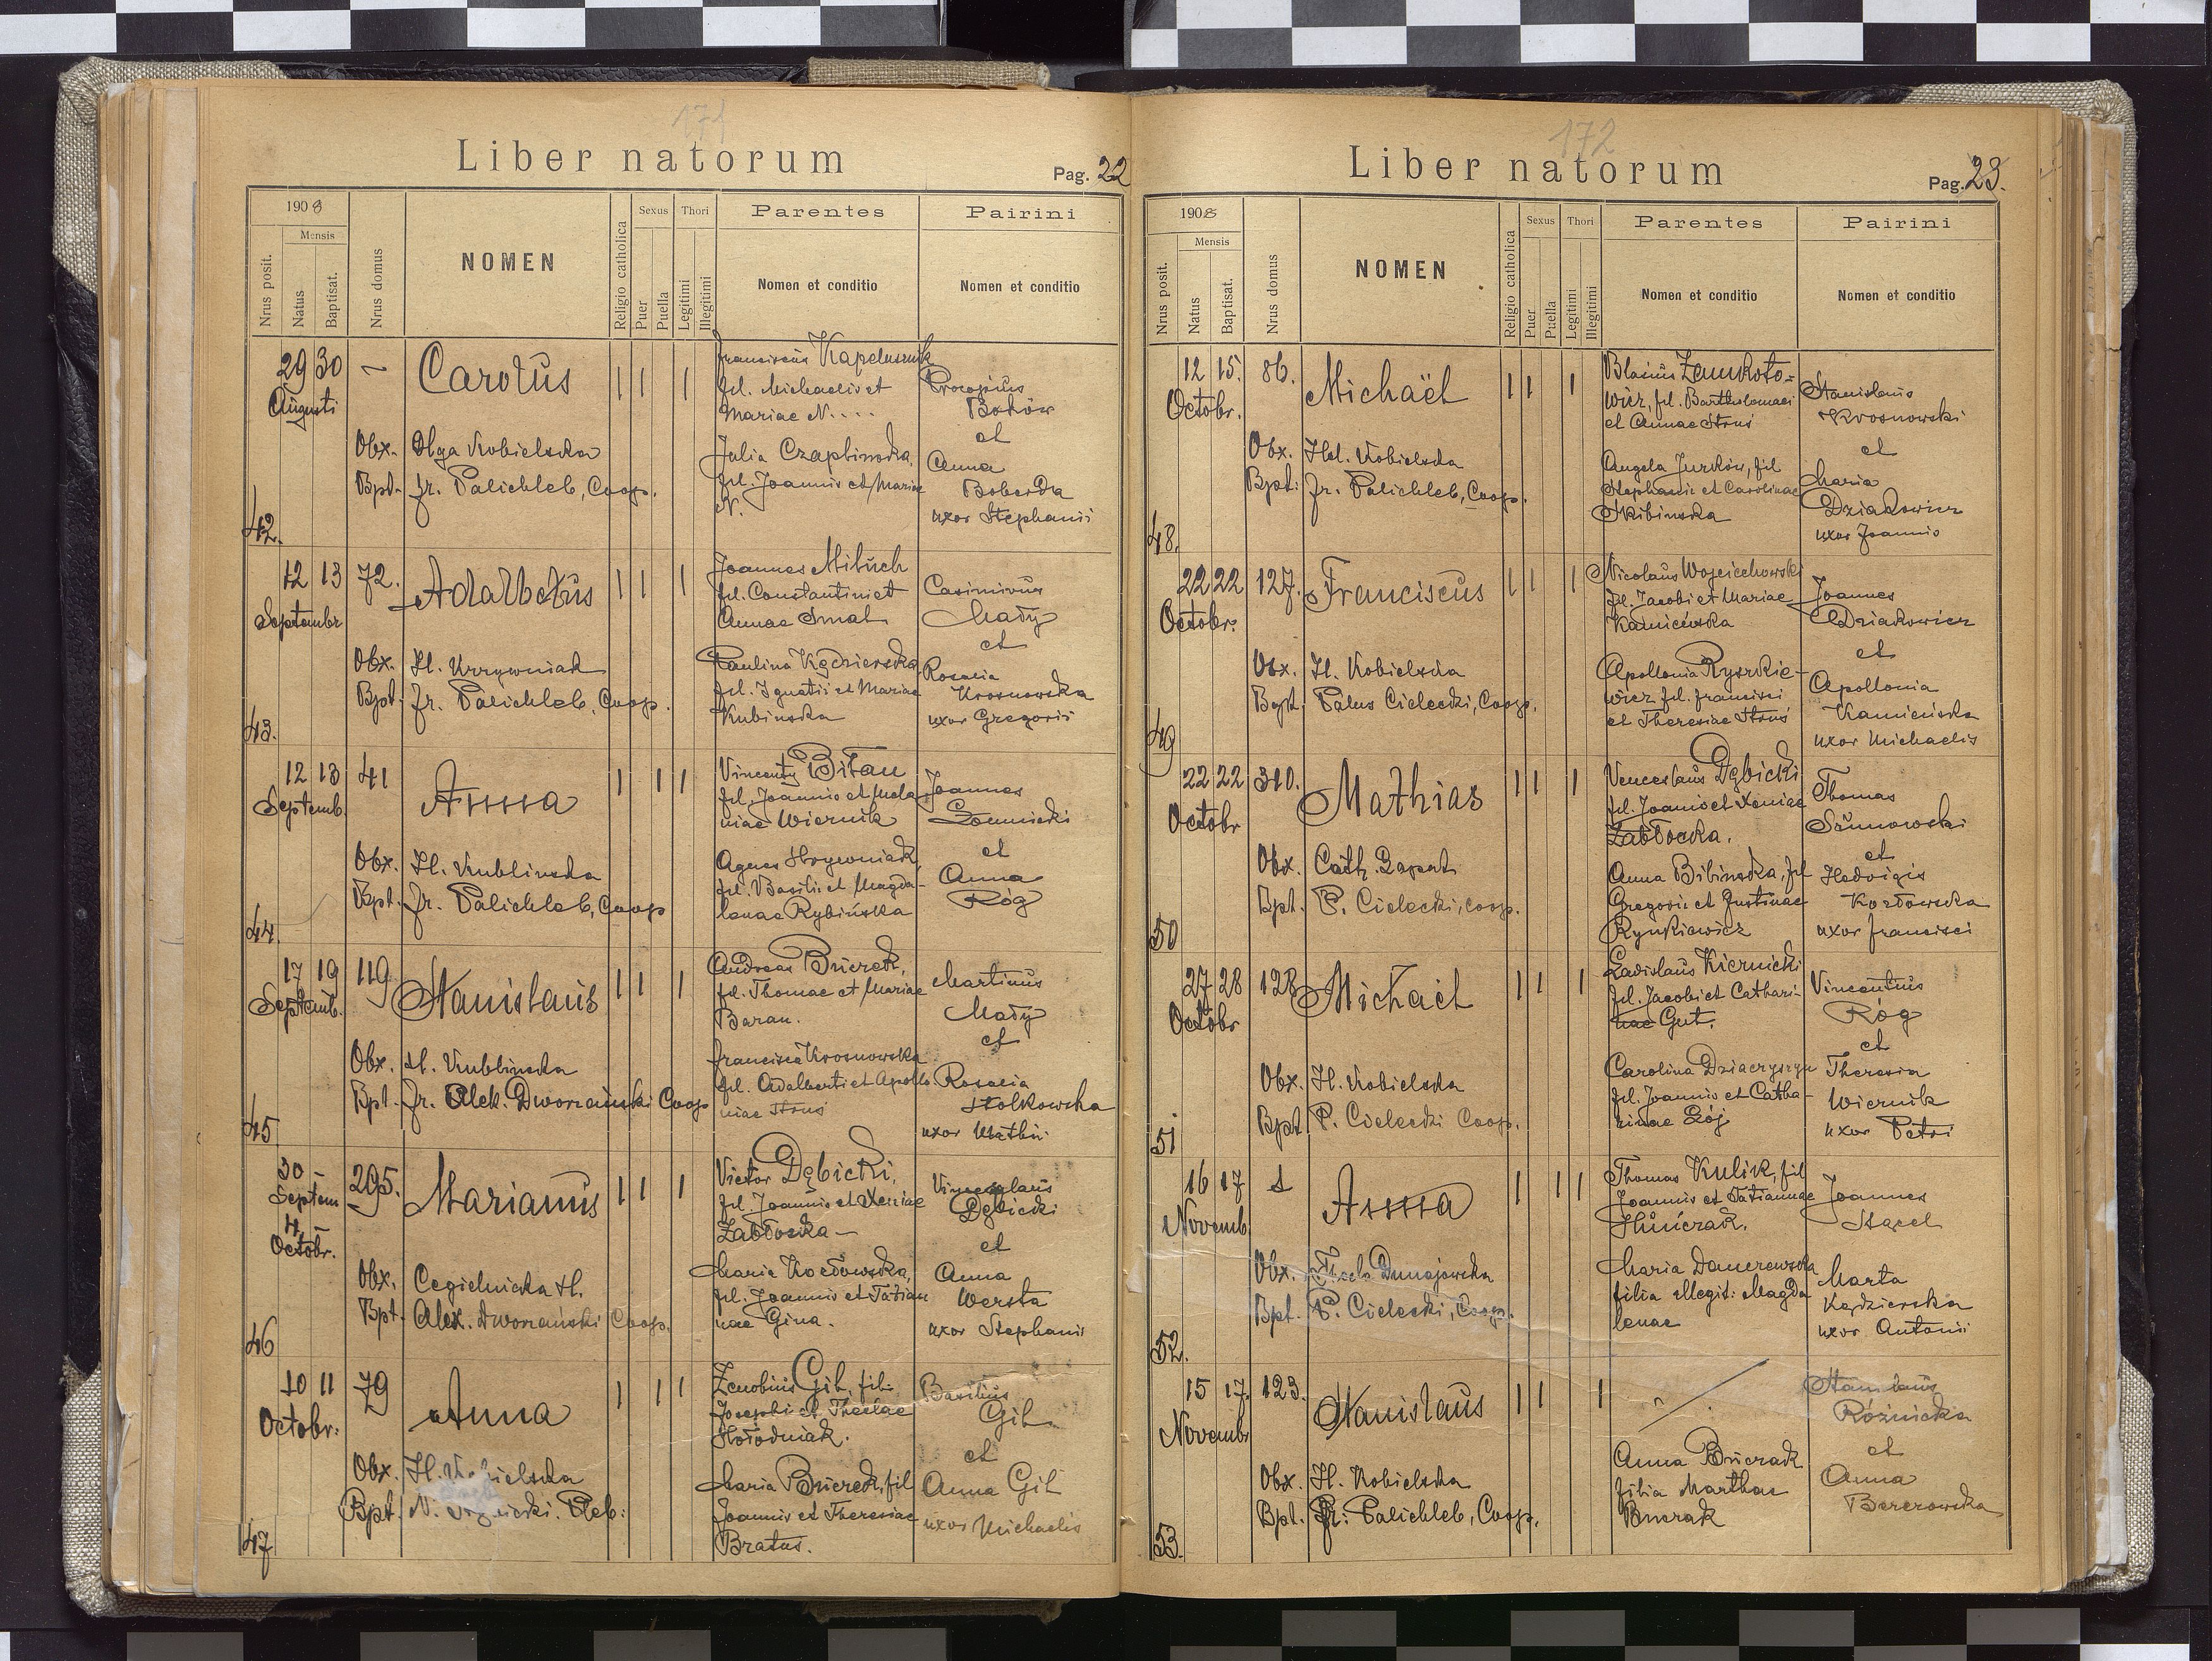 171
Liber natorum
Pag. 22
1908
Mensis
Nrus posit.
Natus
Baptisat.
Nrus domus
NOMEN
Religio catholica
Sexus
Puer
Puella
Thori
Legitimi
Illegitimi
Parentes
Nomen et conditio
Pairini
Nomen et conditio
42.
29 30
Augusti
Carolus
1 1 1
Obx. Olga Kobielska
Bpt. Fr. Palichleb, Coop.
Franciscus Kapelusznik
fil. Michaelis et
Mariae N....
Julia Czaplinska,
fil. Joannis et Mariae
N.
Procopius
et
Anna
Boberska
uxor Stephani
43.
12 13
Septembr
72.
Adalbertus
1 1 1
Obx. H.
Bpt. Fr. Palichleb, Coop.
Joannes
fil. Constantini et
Annae
Paulina Kędzierska
fil. Ignatii et Mariae
Kubinska
Casimirus
Mady
et
Rosalia
Krosnowska
uxor Gregorii
44.
12 13
Septemb.
41
Anna
1 1 1
Obx. H. Kublinska
Bpt. Fr. Palichleb, Coop
Vincenty Bitau
fil. Joannis et Mela
niae Wiernik
Agnes Hrywniak,
fil. Basilii et Magda-
lenae Rybińska
Joannes
et
Anna
Róg
45
17 19
Septemb.
119
Stanislaus
1 1 1
Obx. H. Kublinska
Bpt. Fr. Alek. Dworzański Coop
Andreas Bucrek,
fil. Thomae et Mariae
Baran.
Francisca Krosnowska
fil. Adalberti et Apollo
niae Strus
Martinus
Mady
et
Rosalia
Stolkowska
uxor Mathii
46
30
Septem
4
Octobr.
295.
Marianus
1 1 1
Obx. Cegielnicka H.
Bpt. Alex. Dworzański Coop.
Victor Dębicki,
fil. Joannis et Xeniae
Zabłocka
Maria Kozłowska,
fil. Joannis et Tatian
nae Gina.
Dębicki
et
Anna
Wersta
uxor Stephani
47
10 11
Octobr.
79
Anna
1 1 1
Obx. H. Kobielska
Bpt. N. Pleb:
Zenobius Gil, fil.
Josephi et Theclae
Hołodniak.
Maria Bucrek, fil
Joannis et Theresiae
Bratus.
Basilius
Gil
et
Anna Gil
uxor Michaelis
172
Liber natorum
Pag. 23.
1908
Mensis
Nrus posit.
Natus
Baptisat.
Nrus domus
NOMEN
Religio catholica
Sexus
Puer
Puella
Thori
Legitimi
Illegitimi
Parentes
Nomen et conditio
Pairini
Nomen et conditio
48.
12 15.
Octobr.
86.
Michaël
1 1 1
Obx. Hel. Kobielska
Bpt: Fr. Palichleb, Coop.
Blasius Zamkoto=
wicz, fil. Bartholomaei
et Annae Strus
Angela Jurków, fil
Stephani et Carolinae
Skibinska
Stanislaus
Krosnowski
et
Maria
Dziakowicz
uxor Joannis
49
22 22
Octobr:
127.
Franciscus
1 1 1
Obx. H. Kobielska
Bpt. Palus Cielecki, Coop.
Nicolaus Wojciechowski
fil. Jacobi et Mariae
Kamienska
Apollonia Ryszkie-
wicz fil. Francisci
et Theresiae Strus
Joannes
Dziakowicz
et
Apollonia
Kamieńska
uxor Michaelis
50
22 22
Octobr
310.
Mathias
1 1 1
Obx. Cath. Gapert
Bpt. P. Cielecki, coop.
Venceslaus Dębicki
fil. Joannis et Xeniae
Zabłocka.
Anna Bibinska, fil
Gregorii et Justinae
Rynkiewicz
Thomas
et
Hedvigis
Kozłowska
uxor Francisci
51
27 28
Octobr
128
Michael
1 1 1
Obx. H. Kobielska
Bpt. P. Cielecki Coop.
Ladislaus Kiernicki
fil. Jacobi et Cathari-
nae Gut.
Carolina
fil. Joannis et Catha-
rinae Gój
Vincentius
Róg
et
Theresia
Wiernik
uxor Petri
52.
16 17
Novemb.
1
Anna
1 1 1
Obx. Thecla Dunajowska
Bpt. P. Cielecki, Coop.
Thomas Kulik, fil
Joannis et Tatiannae
Maria
filia illegit: Magda
lenae
Joannes
et
Marta
Kędzierska
uxor Antonii
53.
15 17.
Novembr
123.
Stanislaus
1 1 1
Obx. H. Kobielska
Bpt. Fr: Palichleb, Coop.
Anna Bucrak
filia Marthae
Bucrak
Stanislaus
Różnicka
et
Anna
Berezowska